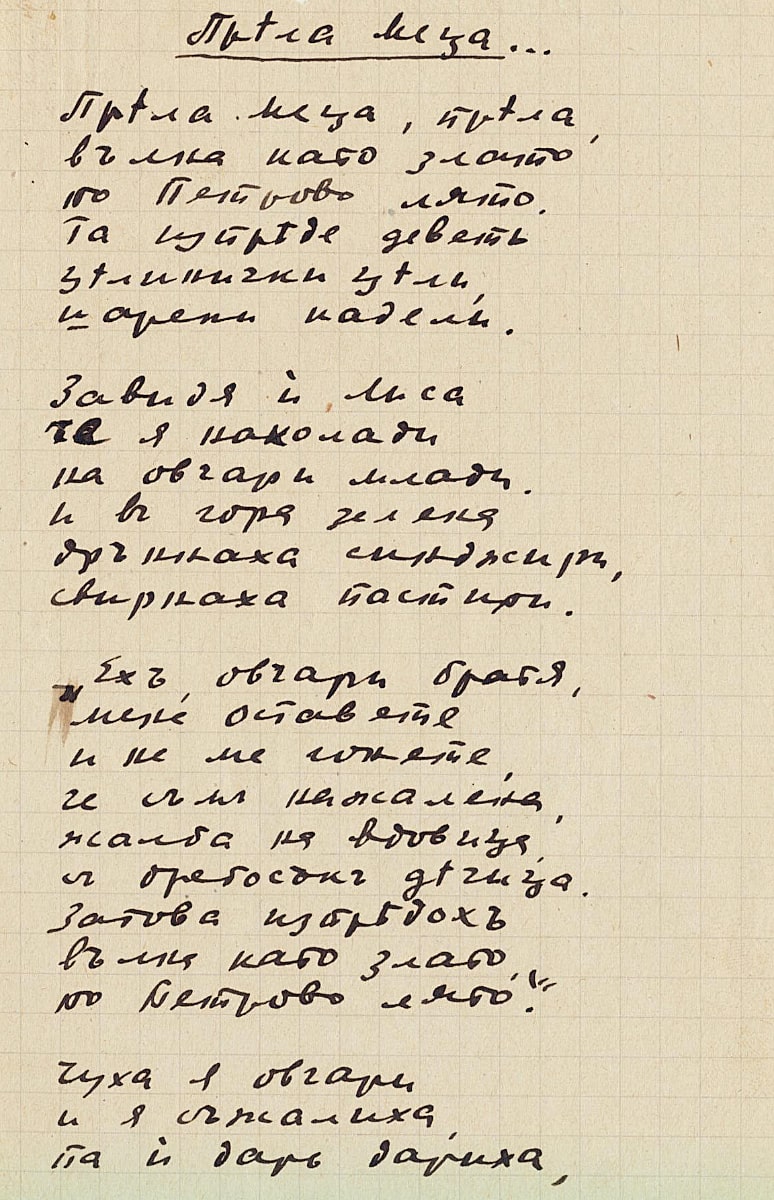 Прѣла меца...
Прѣла меца, прѣла,
вълна като злато
по Петрово лято.
Та изпрѣде деветь
цѣлинички цѣли,
шарени кадели.
Завидя ѝ Лиса
че я наклади
на овчари млади.
и въ гора зелена
дръннаха синджири,
свирнаха пастири.
„Ехъ, овчари братя,
мене оставете
и не ме гонете,
че съмъ нажалена,
жалба на вдовица
съ дребосъкъ дѣчица.
Затова изпрѣдохъ
вълна като злато,
по Петрово лято."
Чуха я овчари
и я съжалиха,
па ѝ даръ дариха,